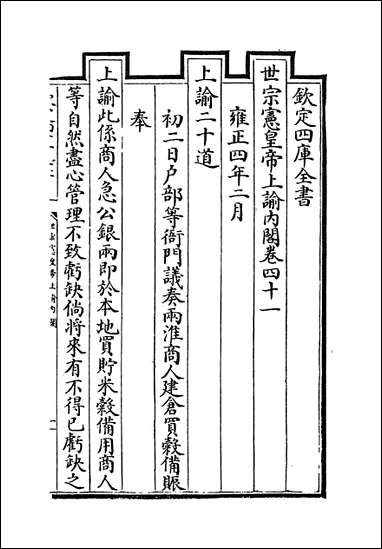 欽定四庫全書
世宗憲皇帝上諭內閣卷四十一
雍正四年二月
上諭二十道
初二日户部等衙門議奏兩淮商人建倉買穀備賑
奉
上諭此係商人急公銀兩即於本地買貯米穀備用商人
等自然盡心管理不致虧缺倘將來有不得已虧缺之